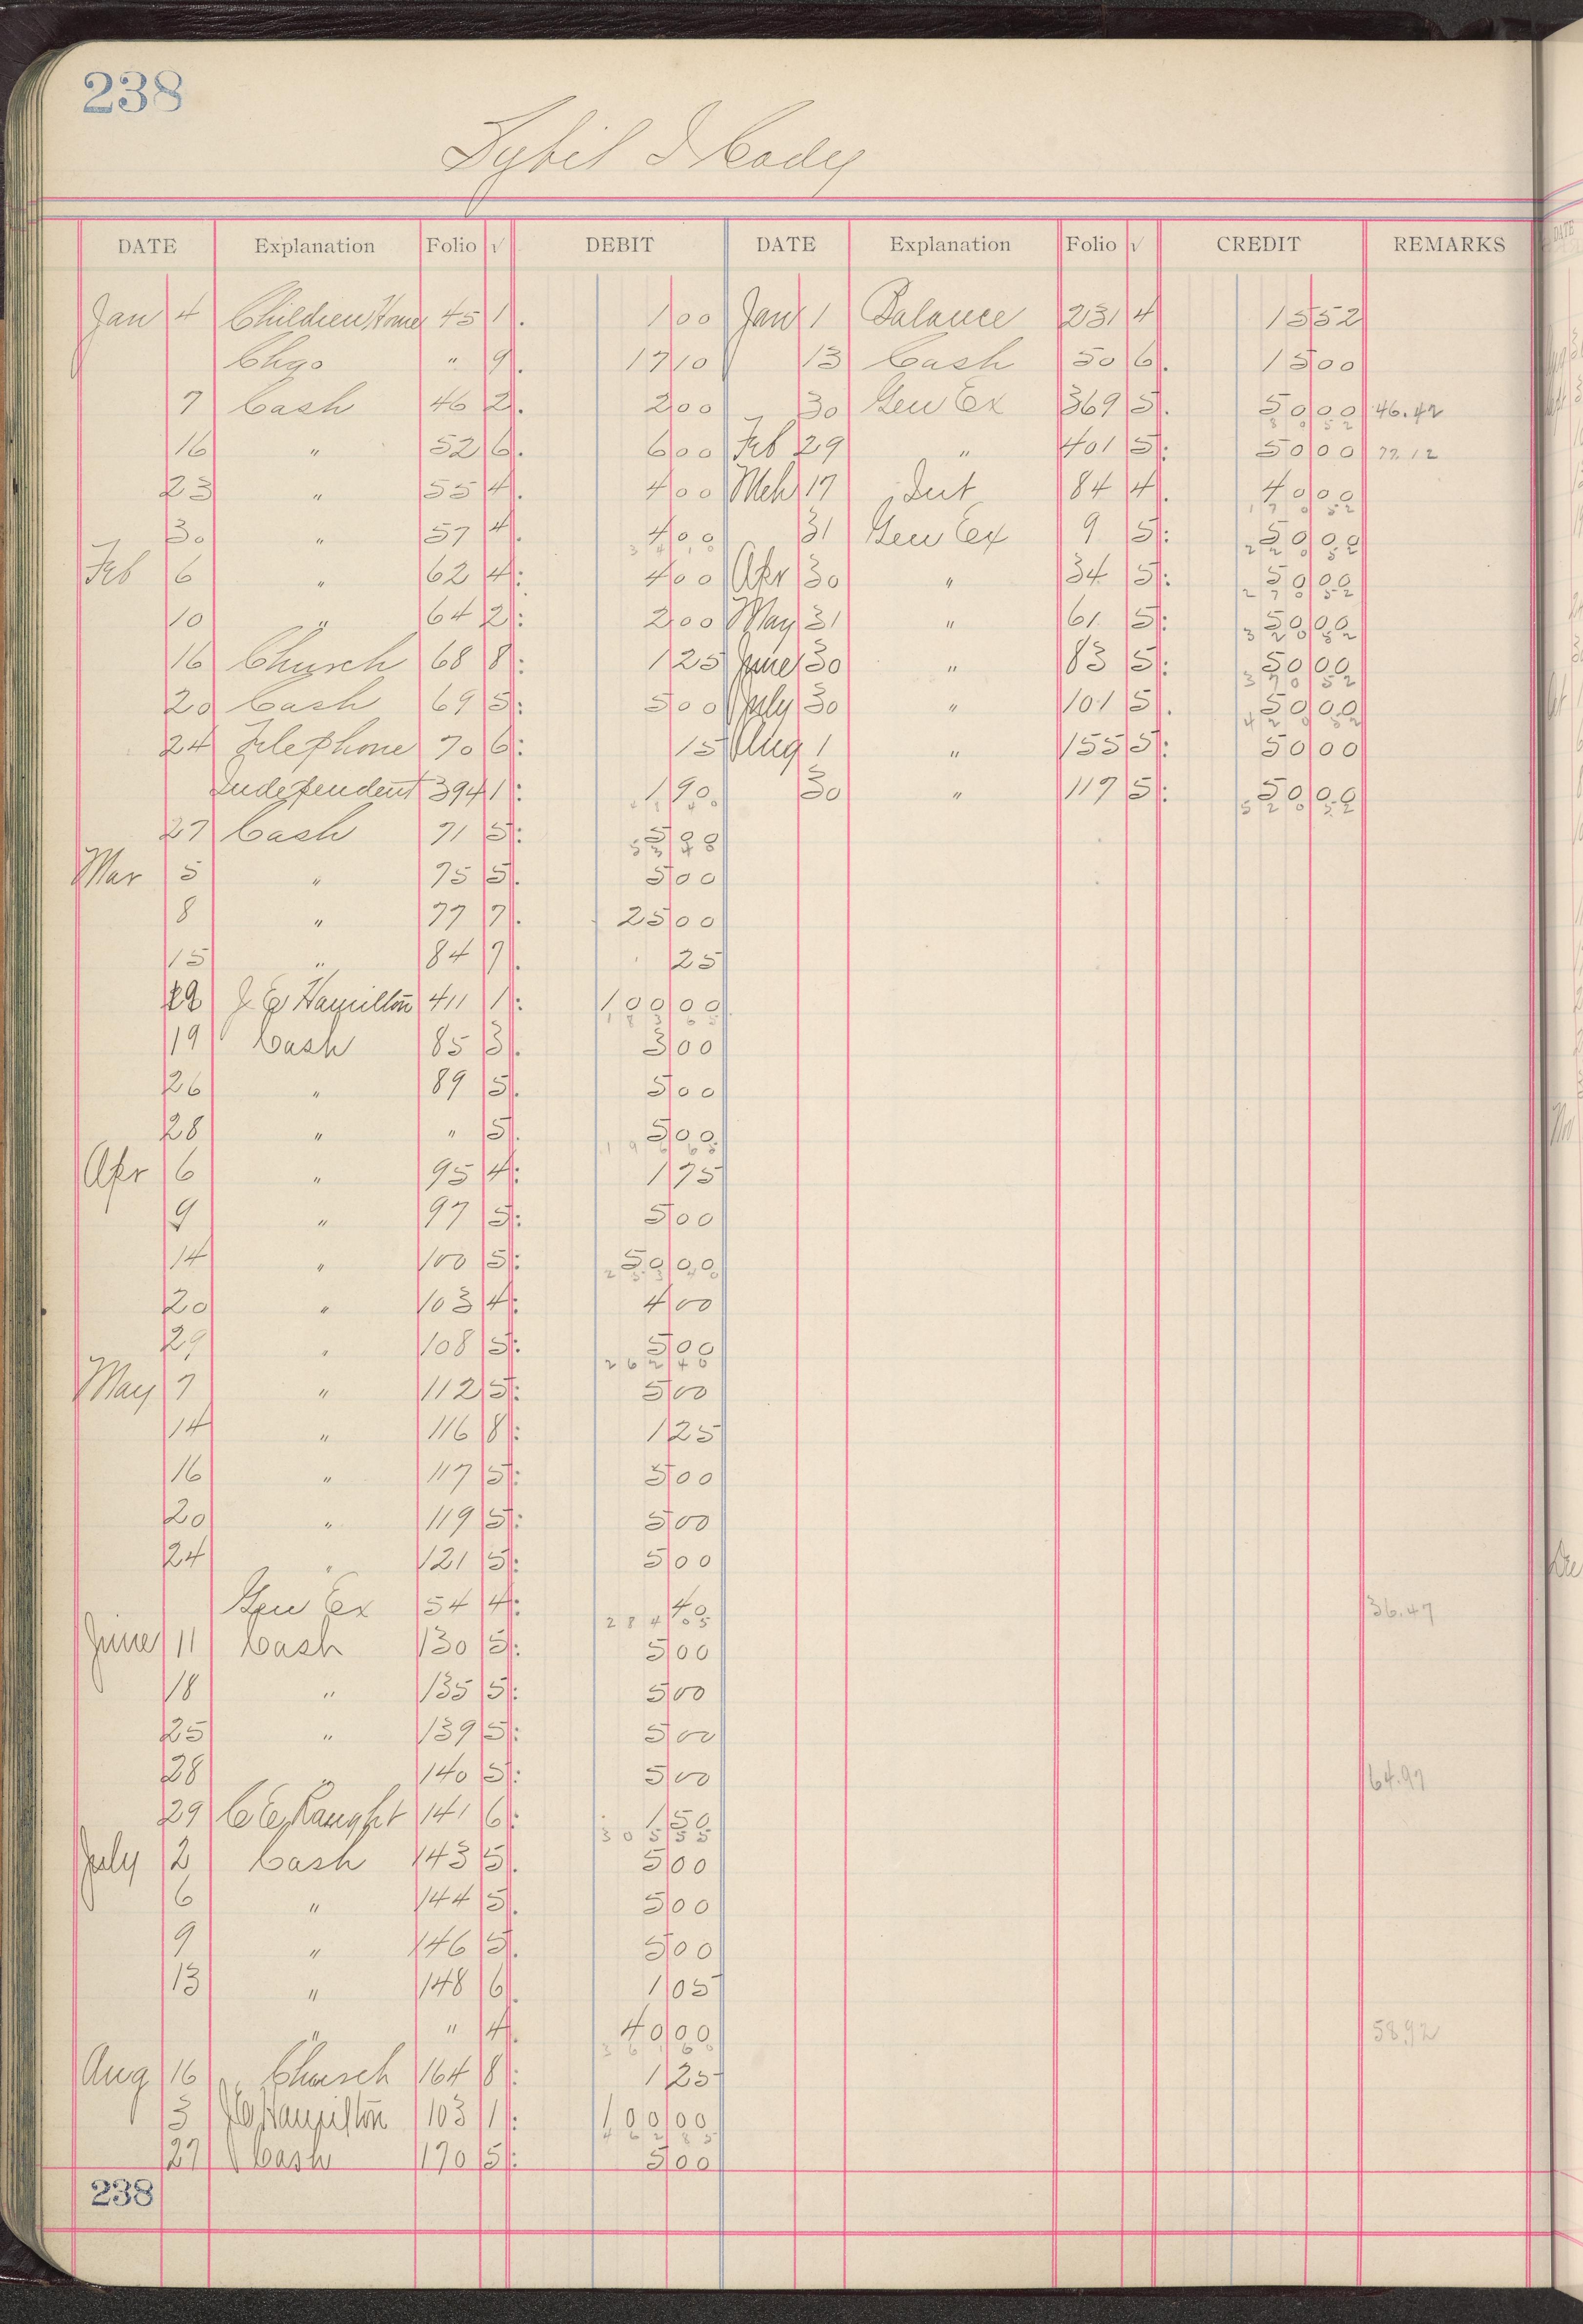 238
Sybil I Cody
DATE Explanation Folio √ DEBIT DATE Explanation Folio √ CREDIT REMARKS
Jan 4 Children Home 45 1. 1 00 Jan 1 Balance 231 4 15 52
Chgo " 9. 17 10 13 Cash 50 6. 15 00
7 Cash 46 2. 2 00 30 Gen Ex 369 5. 50 00 46.42
80 52
16 " 52 6. 6 00 Feb 29 " 401 5: 50 00 77.12
23 " 55 4. 4 00 Mch 17 Int 84 4. 40 00
170 52
30 " 57 4. 4 00 31 Gen Ex 9 5: 50 00
34 10 220 52
Feb 6 " 62 4: 4 00 Apr 30 " 34 5: 50 00
270 52
10 " 64 2: 2 00 May 31 " 61 5: 50 00
320 52
16 Church 68 8: 1 25 June 30 " 83 5: 50 00
370 52
20 Cash 69 5: 5 00 July 30 " 101 5. 50 00
420 52
24 Telephone 70 6: 15 Aug 1 " 155 5: 50 00
Independent 394 1: 1 90 30 " 117 5: 50 00
520 52
27 Cash 71 5: 5 00
53 40
Mar 5 " 75 5. 5 00
8 " 77 7. 25 00
15 " 84 7. 25
J E Hamilton 411 1: 100 00
183 65
19 Cash 85 3. 3 00
26 " 89 5. 5 00
28 " " 5. 5 00
196 65
Apr 6 " 95 4: 1 75
9 " 97 5: 5 00
14 " 100 5: 50 00
253 40
20 " 103 4: 4 00
29 " 108 5: 5 00
262 40
May 7 " 112 5: 5 00
14 " 116 8: 1 25
16 " 117 5: 5 00
20 " 119 5: 5 00
24 " 121 5: 5 00
Gen Ex 54 4: 40 36.47
284 05
June 11 Cash 130 5: 5 00
18 " 135 5: 5 00
25 " 139 5: 5 00
28 " 140 5: 5 00 64.97
29 C E Raught 141 6: 1 50
305 55
July 2 Cash 143 5. 5 00
6 " 144 5. 5 00
9 " 146 5. 5 00
13 " 148 6. 1 05
" " 4. 40 00 58.92
361 60
Aug 16 Church 164 8: 1 25
3 J E Hamilton 103 1: 100 00
462 85
27 Cash 170 5: 5 00
238